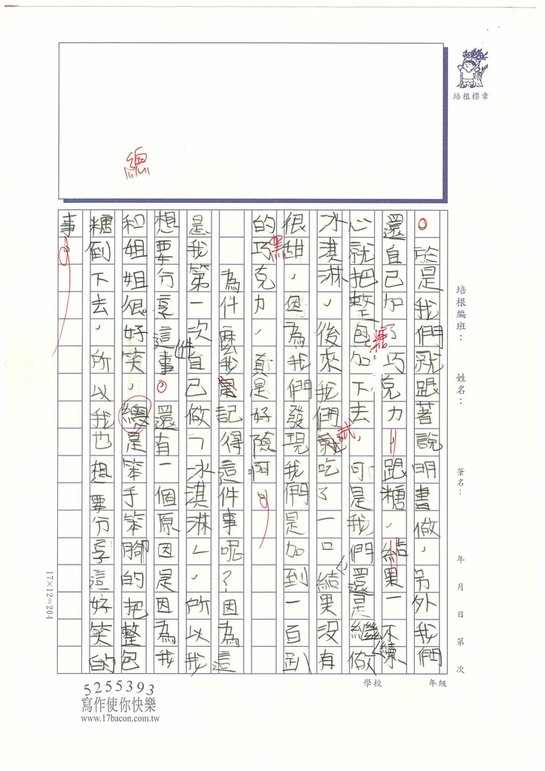 培根標章
培根編班：
姓名：
筆名：
年 月 日 第 次
於是我們就跟著說明書做，另外我們
還自己加了巧克力跟糖，結果一不
心就把整包糖加下去 可是我們還是繼續做
冰淇淋，後來我們試吃了一口 結果沒有
很甜，因為我們發現我們是加到一百趴
的黑巧克力，真是好險啊
為什麼我是記得這件事呢？因為這
是我第一次自己做「冰淇淋」，所以我
想要分享這件事。還有一個原因是因為我
和姐姐很好笑，總是笨手笨腳的把整包
糖到下去，所以我也想要分享這好笑的
事
總
17×12=204
學校
年級
5255393
寫作使你快樂
www.17bacon.com.tw